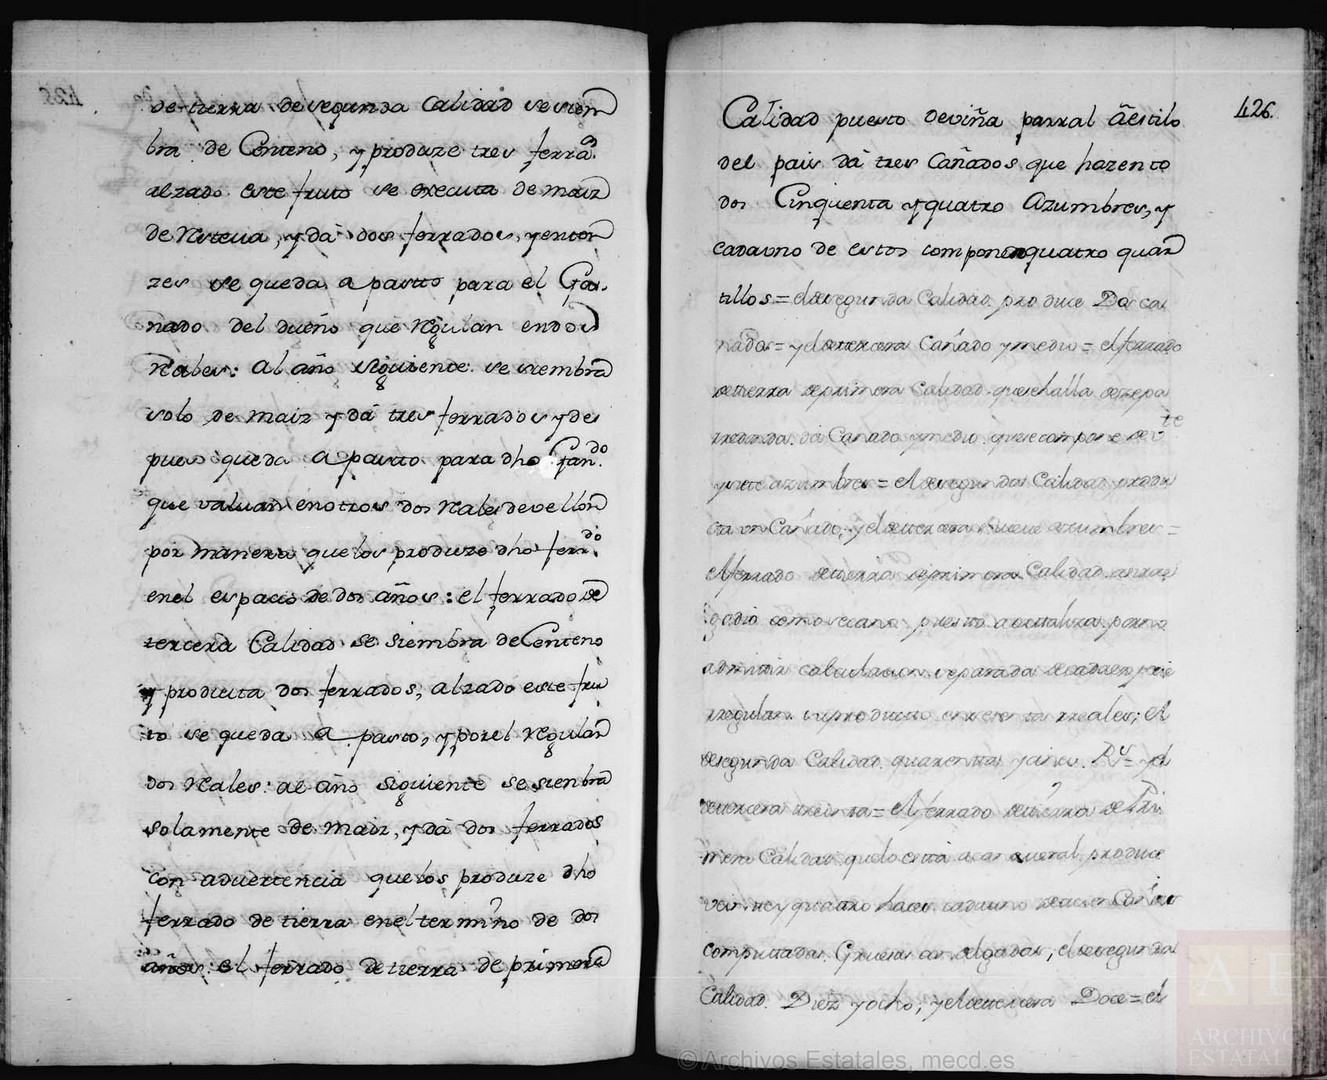 de tierra de segunda Calidad se siem
bra de Centeno, y produze tres ferrados
alzado este fruto se executa de maiz
de Nsteva, y dá dos ferrados, y enton
zes se queda a pasto para el Ga
nado del dueño que Regulan en dos
Reales: Al año siguiente se siembra
solo de maiz y dá tres ferrados y des
pues queda a pasto para dho Gando.
que valuan en otros dos Reales de vellon
por manera que los produze dho ferrdo.
en el espacio de dos años: el ferrado de
tercera Calidad se siembra de Centeno
y producta dos ferrados, alzado este fru
to se queda a pasto, y por el Regulan
dos Reales: al año siguiente se sienbra
solamente de maiz, y dá dos ferrados
con advertencia que los produze dho
ferrado de tierra en el termino de dos
años: el ferrado de tierra de primera
426.
Calidad puesto de viña parral á estilo
del pais dá tres Cañados que hazen to
dos Cinquenta y quatro Azumbres, y
cada uno de estos componen quatro quar
tillos = el de segunda Calidad produce Dos ca
ñados = y el de tercera Cañado y medio = el ferrado
de tierra de primera Calidad que se halla de zepa
redonda dá Cañado y medio que se compone de vte
y siete azumbres = el de segunda Calidad produ
cta un Cañado, y el de tercera nueve azumbres =
el ferrado de tierra de primera Calidad
gadio como secano puesto a ortaliza por no
admitir calculacion separada de cada especie
regulan su producto en sesenta reales; el
de segunda Calidad quarenta y cinco Rs. y el
de tercera treinta = el ferrado de tierra de Pri
mera Calidad que lo está a cañaveral produce
veinte y quatro hazes cada uno de a cien Cañas
computadas Gruesas con delgadas, el de segunda
Calidad Diez y ocho; y el de tercera Doce = el
© Archivos Estatales, mecd.es
AE
ARCHIVOS
ESTATAL